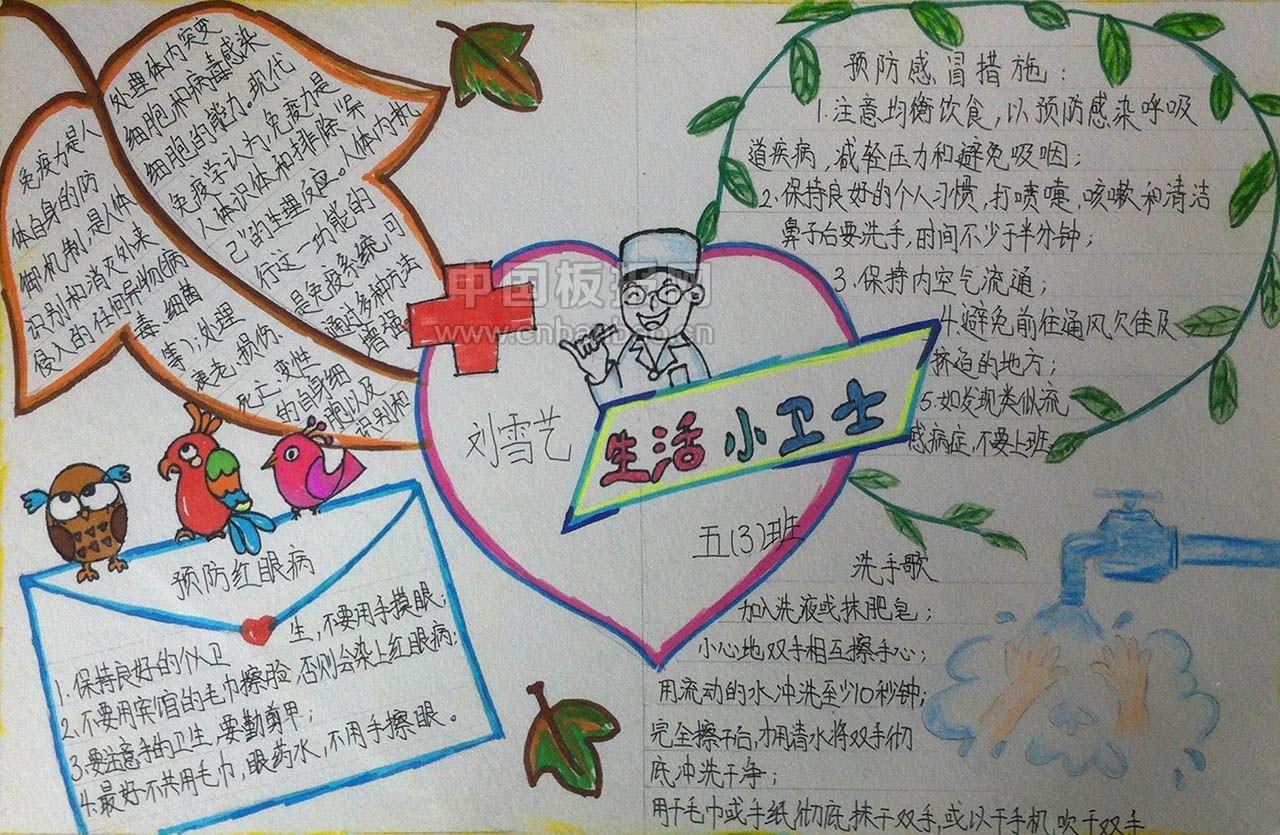 免疫力是人
体自身的防
御机制,是人体
识别和消灭外来
侵入的任何异物(病
毒、细菌
等);处理
衰老、损伤、
死亡、变性
的自身细
胞以及
识别和
处理体内突变
细胞和病毒感染
细胞的能力。现代
免疫学认为,免疫力是
人体识体和排除“异
己”的生理反应。人体内执
行这一功能的
是免疫系统,可
通过多种方法
增强。
预防感冒措施:
1.注意均衡饮食,以预防感染呼吸
道疾病,减轻压力和避免吸咽;
2.保持良好的个人习惯,打喷嚏,咳嗽和清洁
鼻子后要洗手,时间不少于半分钟;
3.保持内空气流通;
4.避免前往通风欠佳及
挤迫的地方;
5.如发现类似流
感病症,不要上班
中国板报网
www.cnbanbao.cn
刘雪艺
生活小卫士
五(3)班
预防红眼病
1.保持良好的个人卫生,不要用手摸眼;
2.不要用宾馆的毛巾擦脸,否则会染上红眼病;
3.要注意手的卫生,要勤剪甲;
4.最好不共用毛巾,眼药水,不用手擦眼。
洗手歌
加入洗液或抹肥皂;
小心地双手相互擦手心;
用流动的水冲洗至少10秒钟;
完全擦干后,才用清水将双手彻
底冲洗干净;
用干毛巾或手纸彻底抹干双手,或以干手机吹干双手